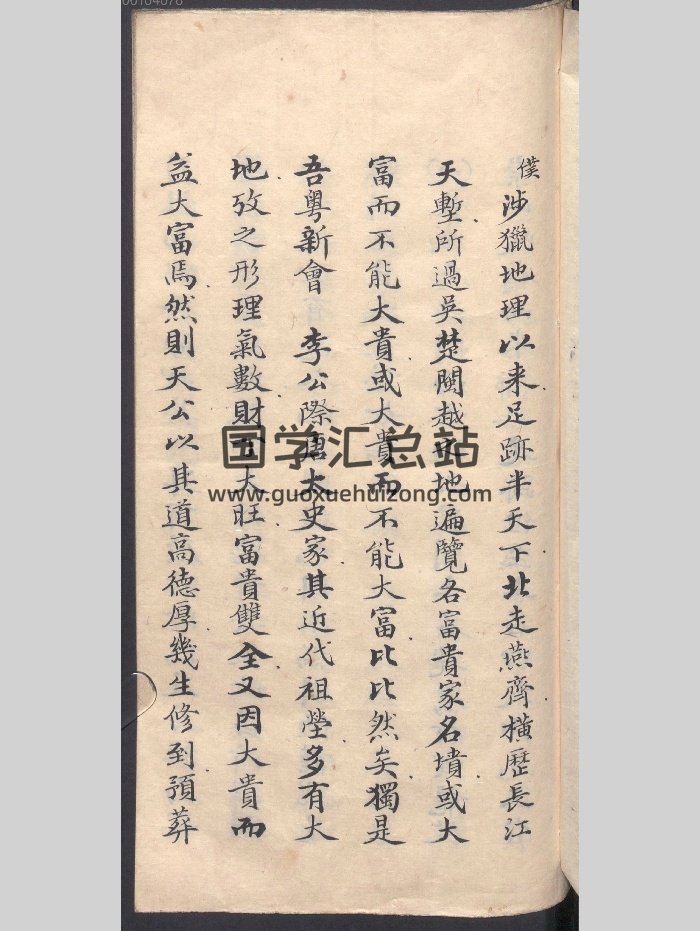 僕涉獵地理以来足跡半天下北走燕齊橫歷長江
天塹所過吳楚閩越之地遍覽各富貴家名墳或大
富而不能大貴或大貴而不能大富比比然矣獨是
吾粵新會 李公際唐太史家其近代祖塋多有大
地攷之形理氣數財官大旺富貴雙全又因大貴而
益大富焉然則天公以其道高德厚幾生修到預葬
国学汇总站
www.guoxuehuizong.com